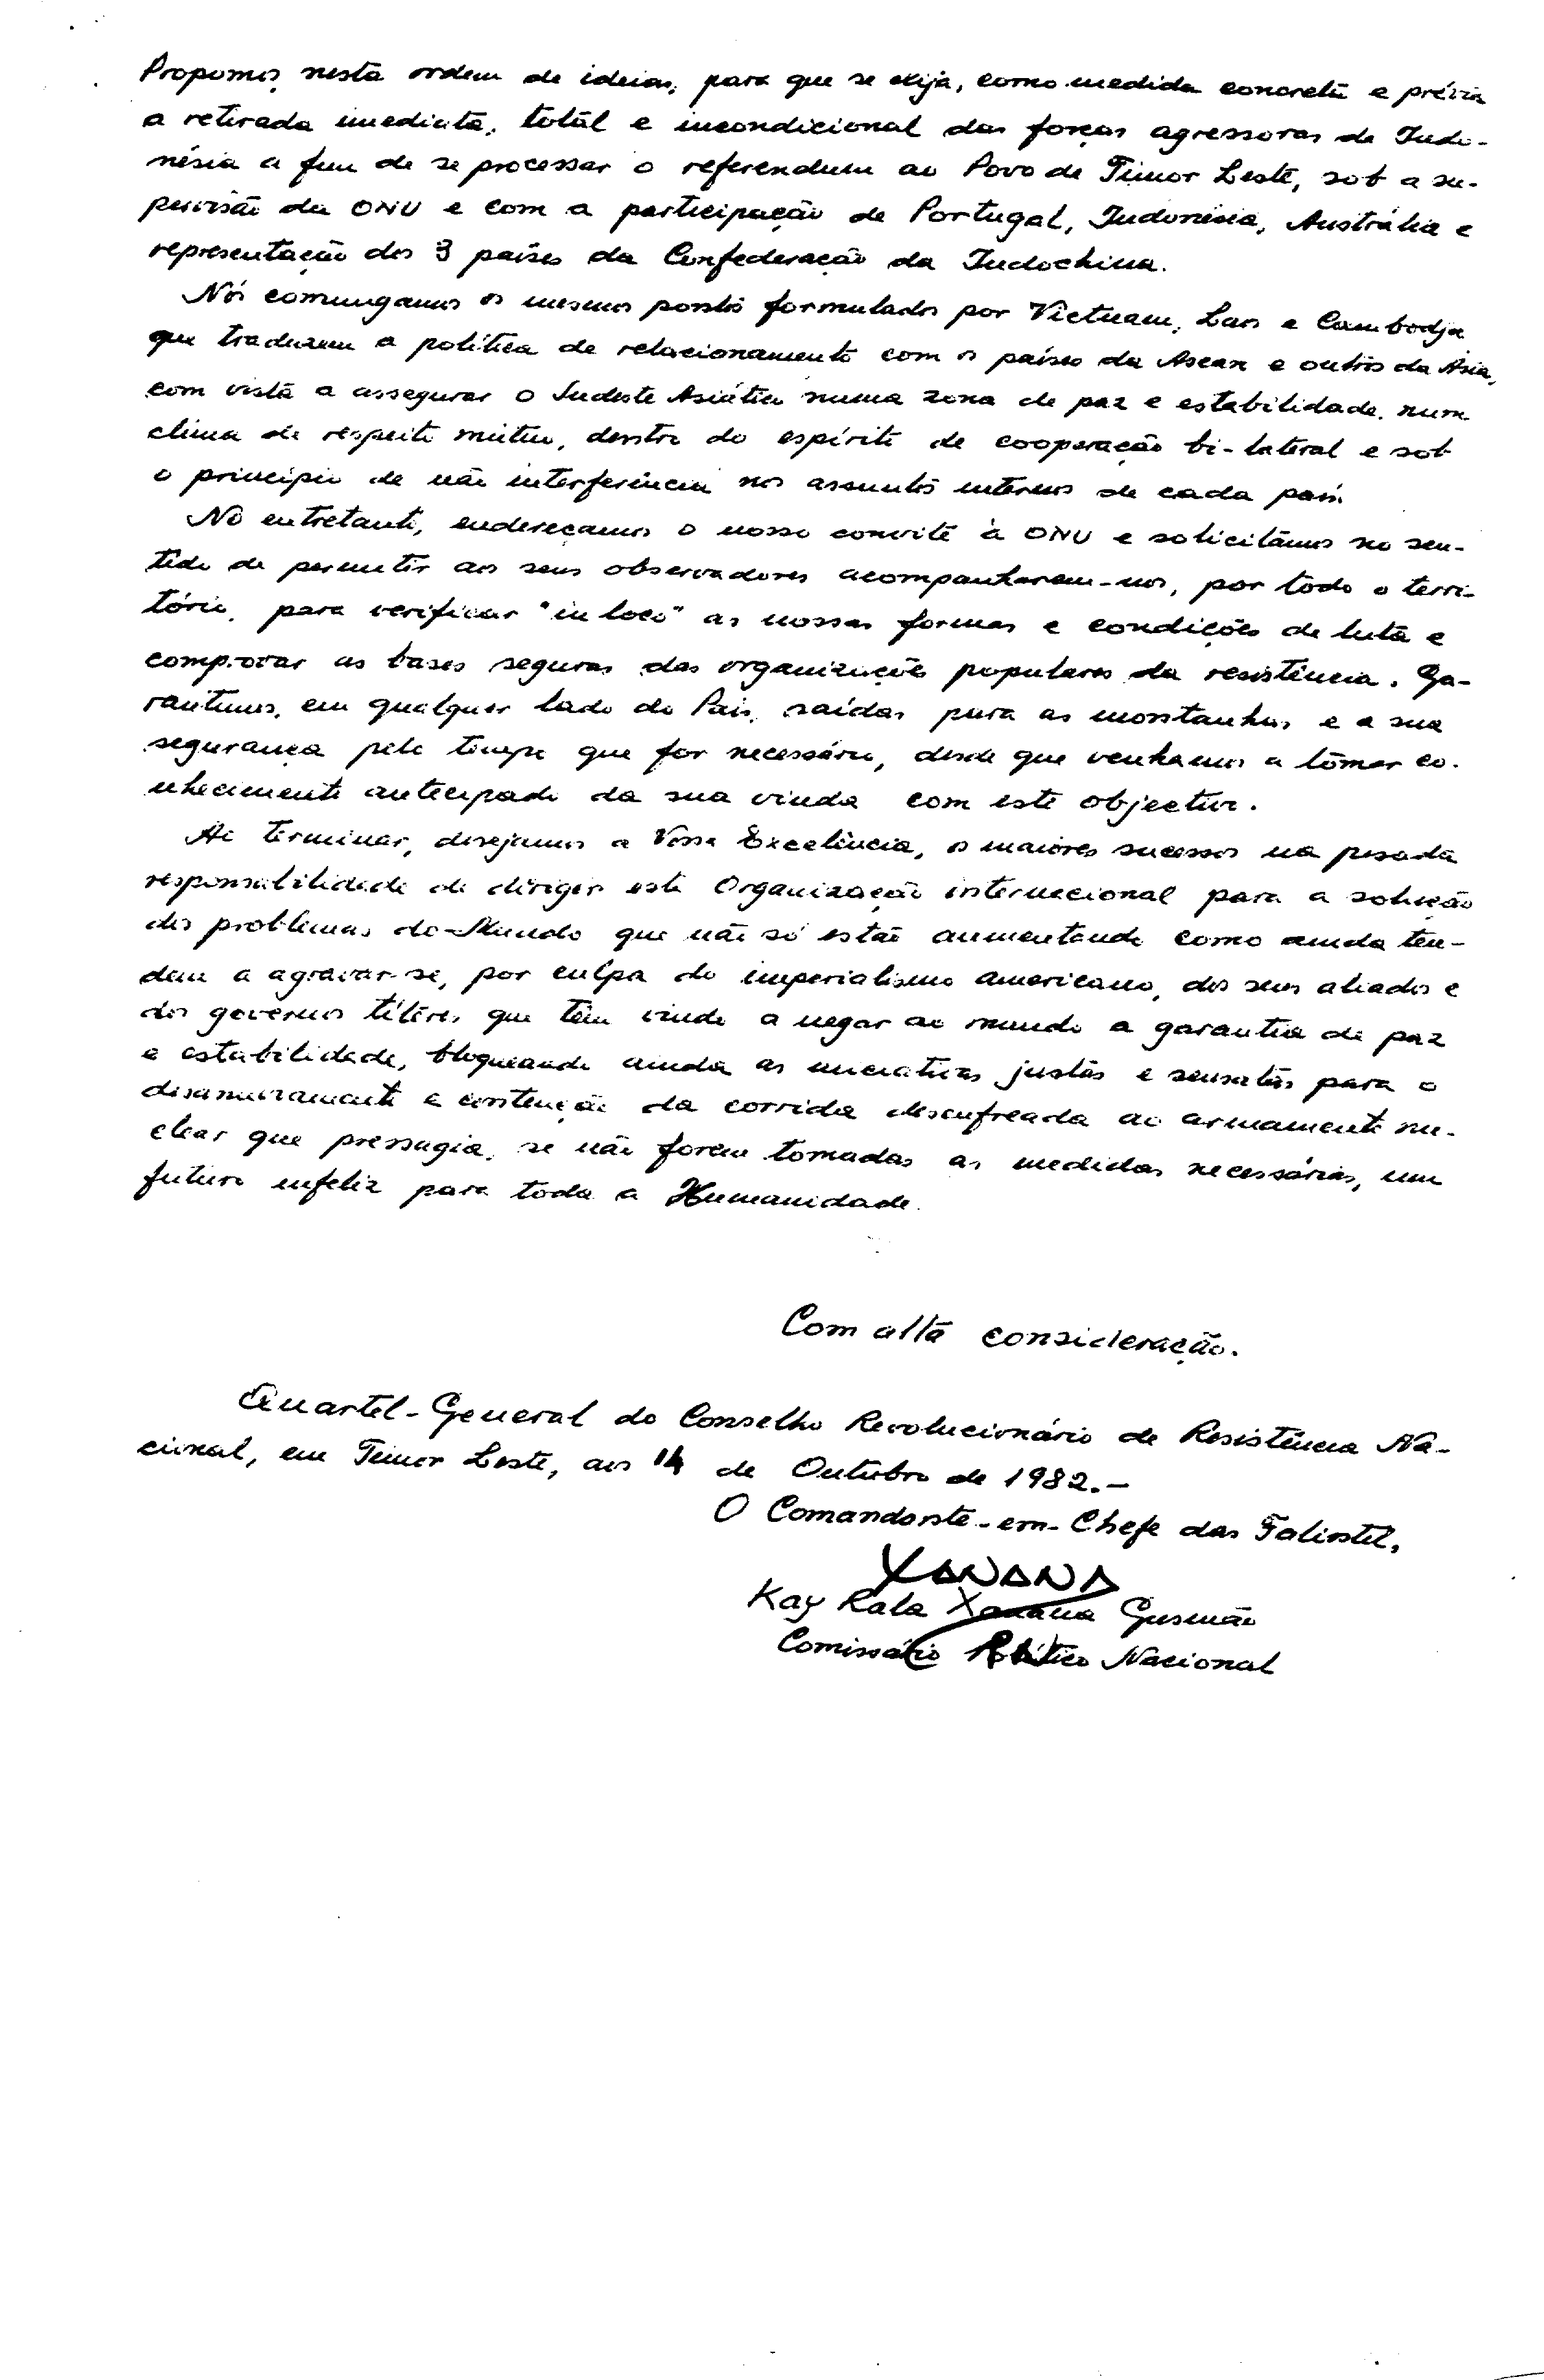 Propomos, nesta ordem de ideias, para que se exija, como medida concreta e prévia
a retirada imediata, total e incondicional das forças agressoras da Indo-
nésia a fim de se processar o referendum ao Povo de Timor Leste, sob a su-
pervisão da ONU e com a participação de Portugal, Indonésia, Austrália e
representação dos 3 países da Confederação da Indochina.
Nós comungamos os mesmos pontos formulados por Vietnam, Laos e Cambodja
que traduzem a política de relacionamento com os países da Asean e outros da Asia,
com vista a assegurar o Sudeste Asiático numa zona de paz e estabilidade, num
clima de respeito mútuo, dentro do espírito de cooperação bi-lateral e sob
o princípio de não interferência nos assuntos internos de cada país.
No entretanto, endereçamos o nosso convite à ONU e solicitamos no sen-
tido de permitir aos seus observadores acompanharem-nos, por todo o terri-
tório, para verificar "in loco" as nossas formas e condições de luta e
comprovar as bases seguras das organizações populares da resistência. Ga-
rantimos, em qualquer lado do País, saídas para as montanhas e a sua
segurança pelo tempo que for necessário, desde que venhamos a tomar co-
nhecimento antecipado da sua vinda com este objectivo.
Ao terminar, desejamos a Vossa Excelência, os maiores sucessos na pesada
responsabilidade de dirigir esta Organização internacional para a solução
dos problemas do Mundo que não só estão aumentando como ainda ten-
dem a agravar-se, por culpa do imperialismo americano, dos seus aliados e
dos governos títeres que têm vindo a negar ao mundo a garantia de paz
e estabilidade, bloqueando ainda as iniciativas justas e sensatas para o
desarmamento e contenção da corrida desenfreada ao armamento nu-
clear que pressagia, se não forem tomadas as medidas necessárias, um
futuro infeliz para toda a Humanidade.
Com alta consideração.
Quartel-General do Conselho Revolucionário de Resistência Na-
cional, em Timor Leste, aos 14 de Outubro de 1982.-
O Comandante-em-Chefe das Falintil,
XANANA
Kay Rala Xanana Gusmão
Comissário Político Nacional